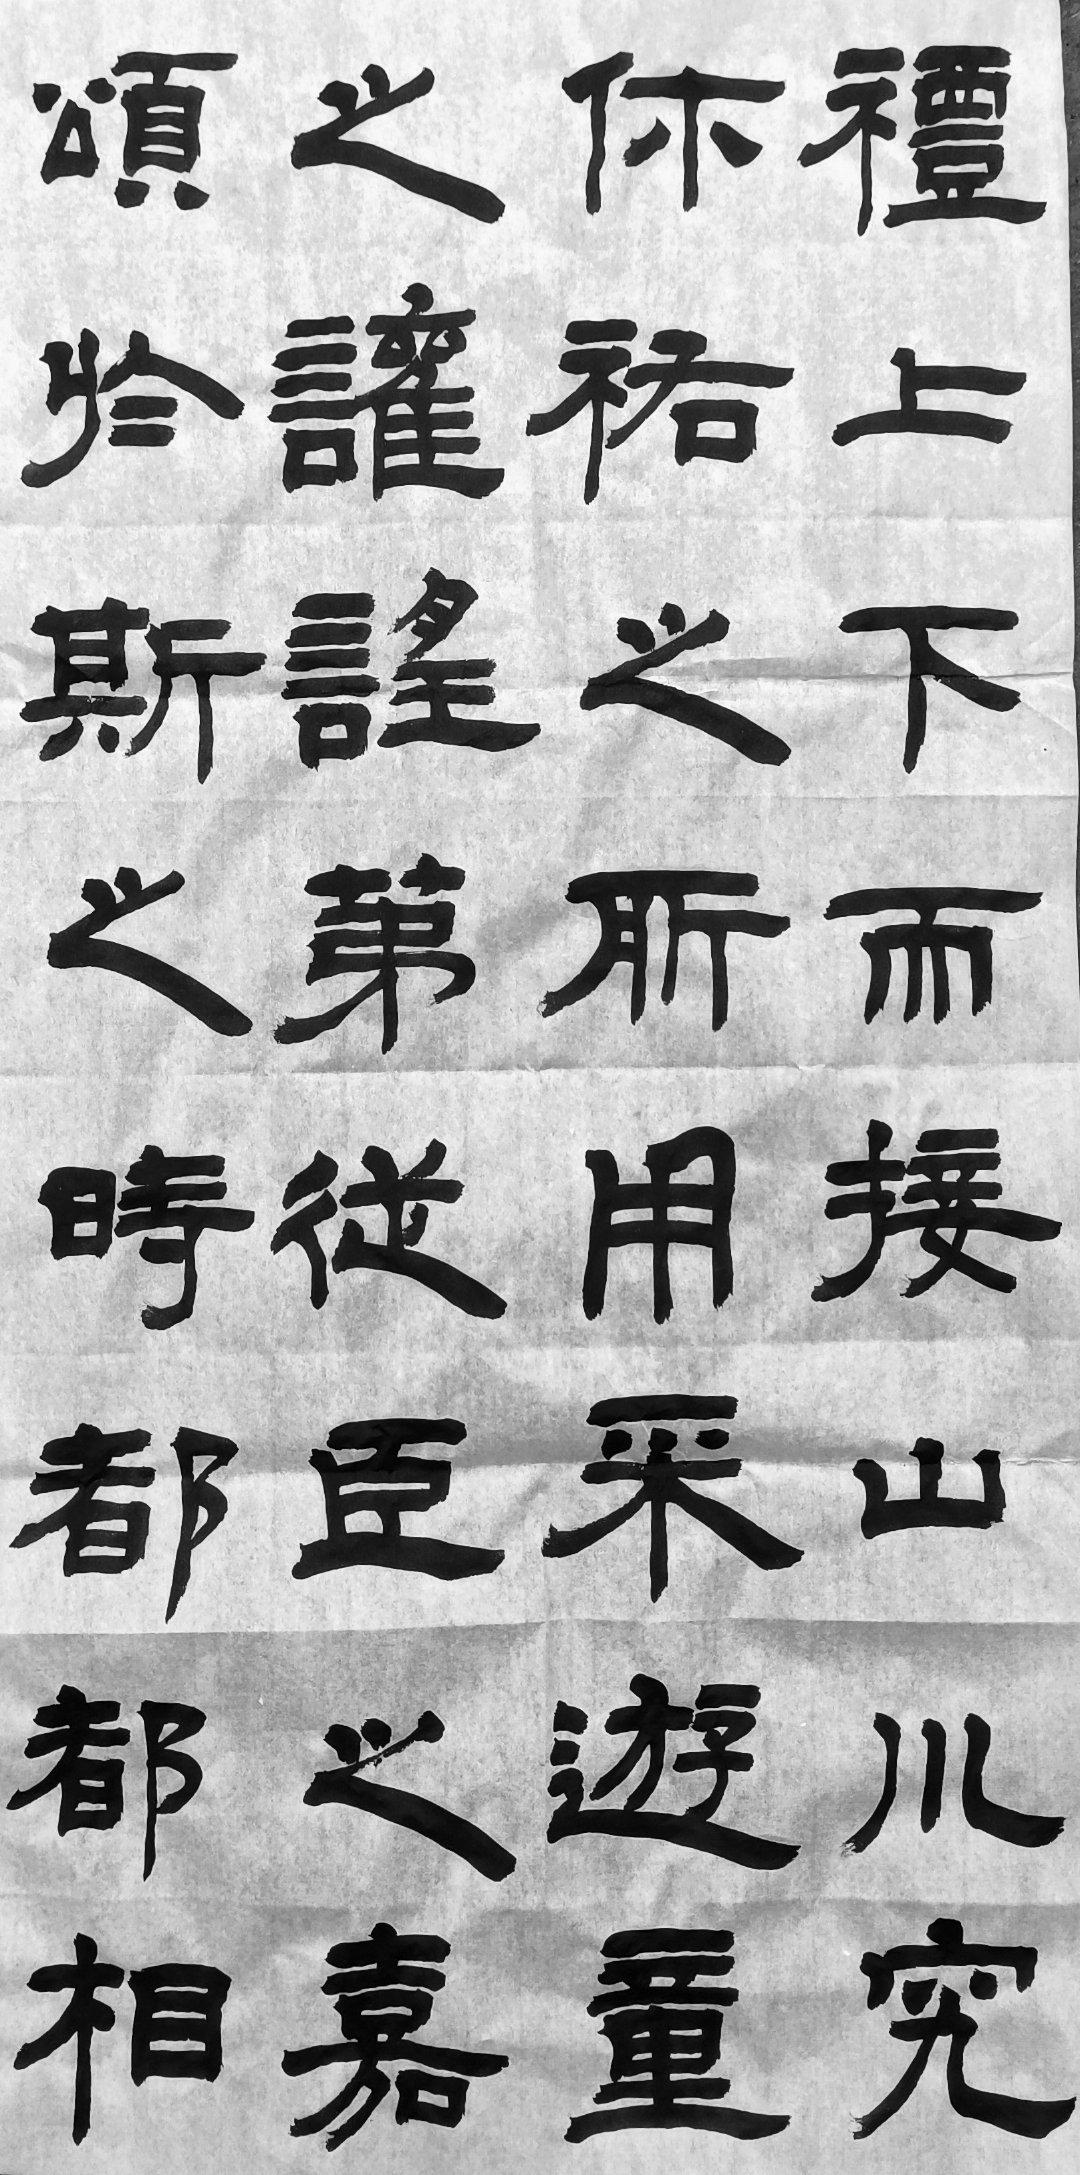 禮上下而接山川究
休祐之所用采遊童
之讙謠第從臣之嘉
頌於斯之時都都相